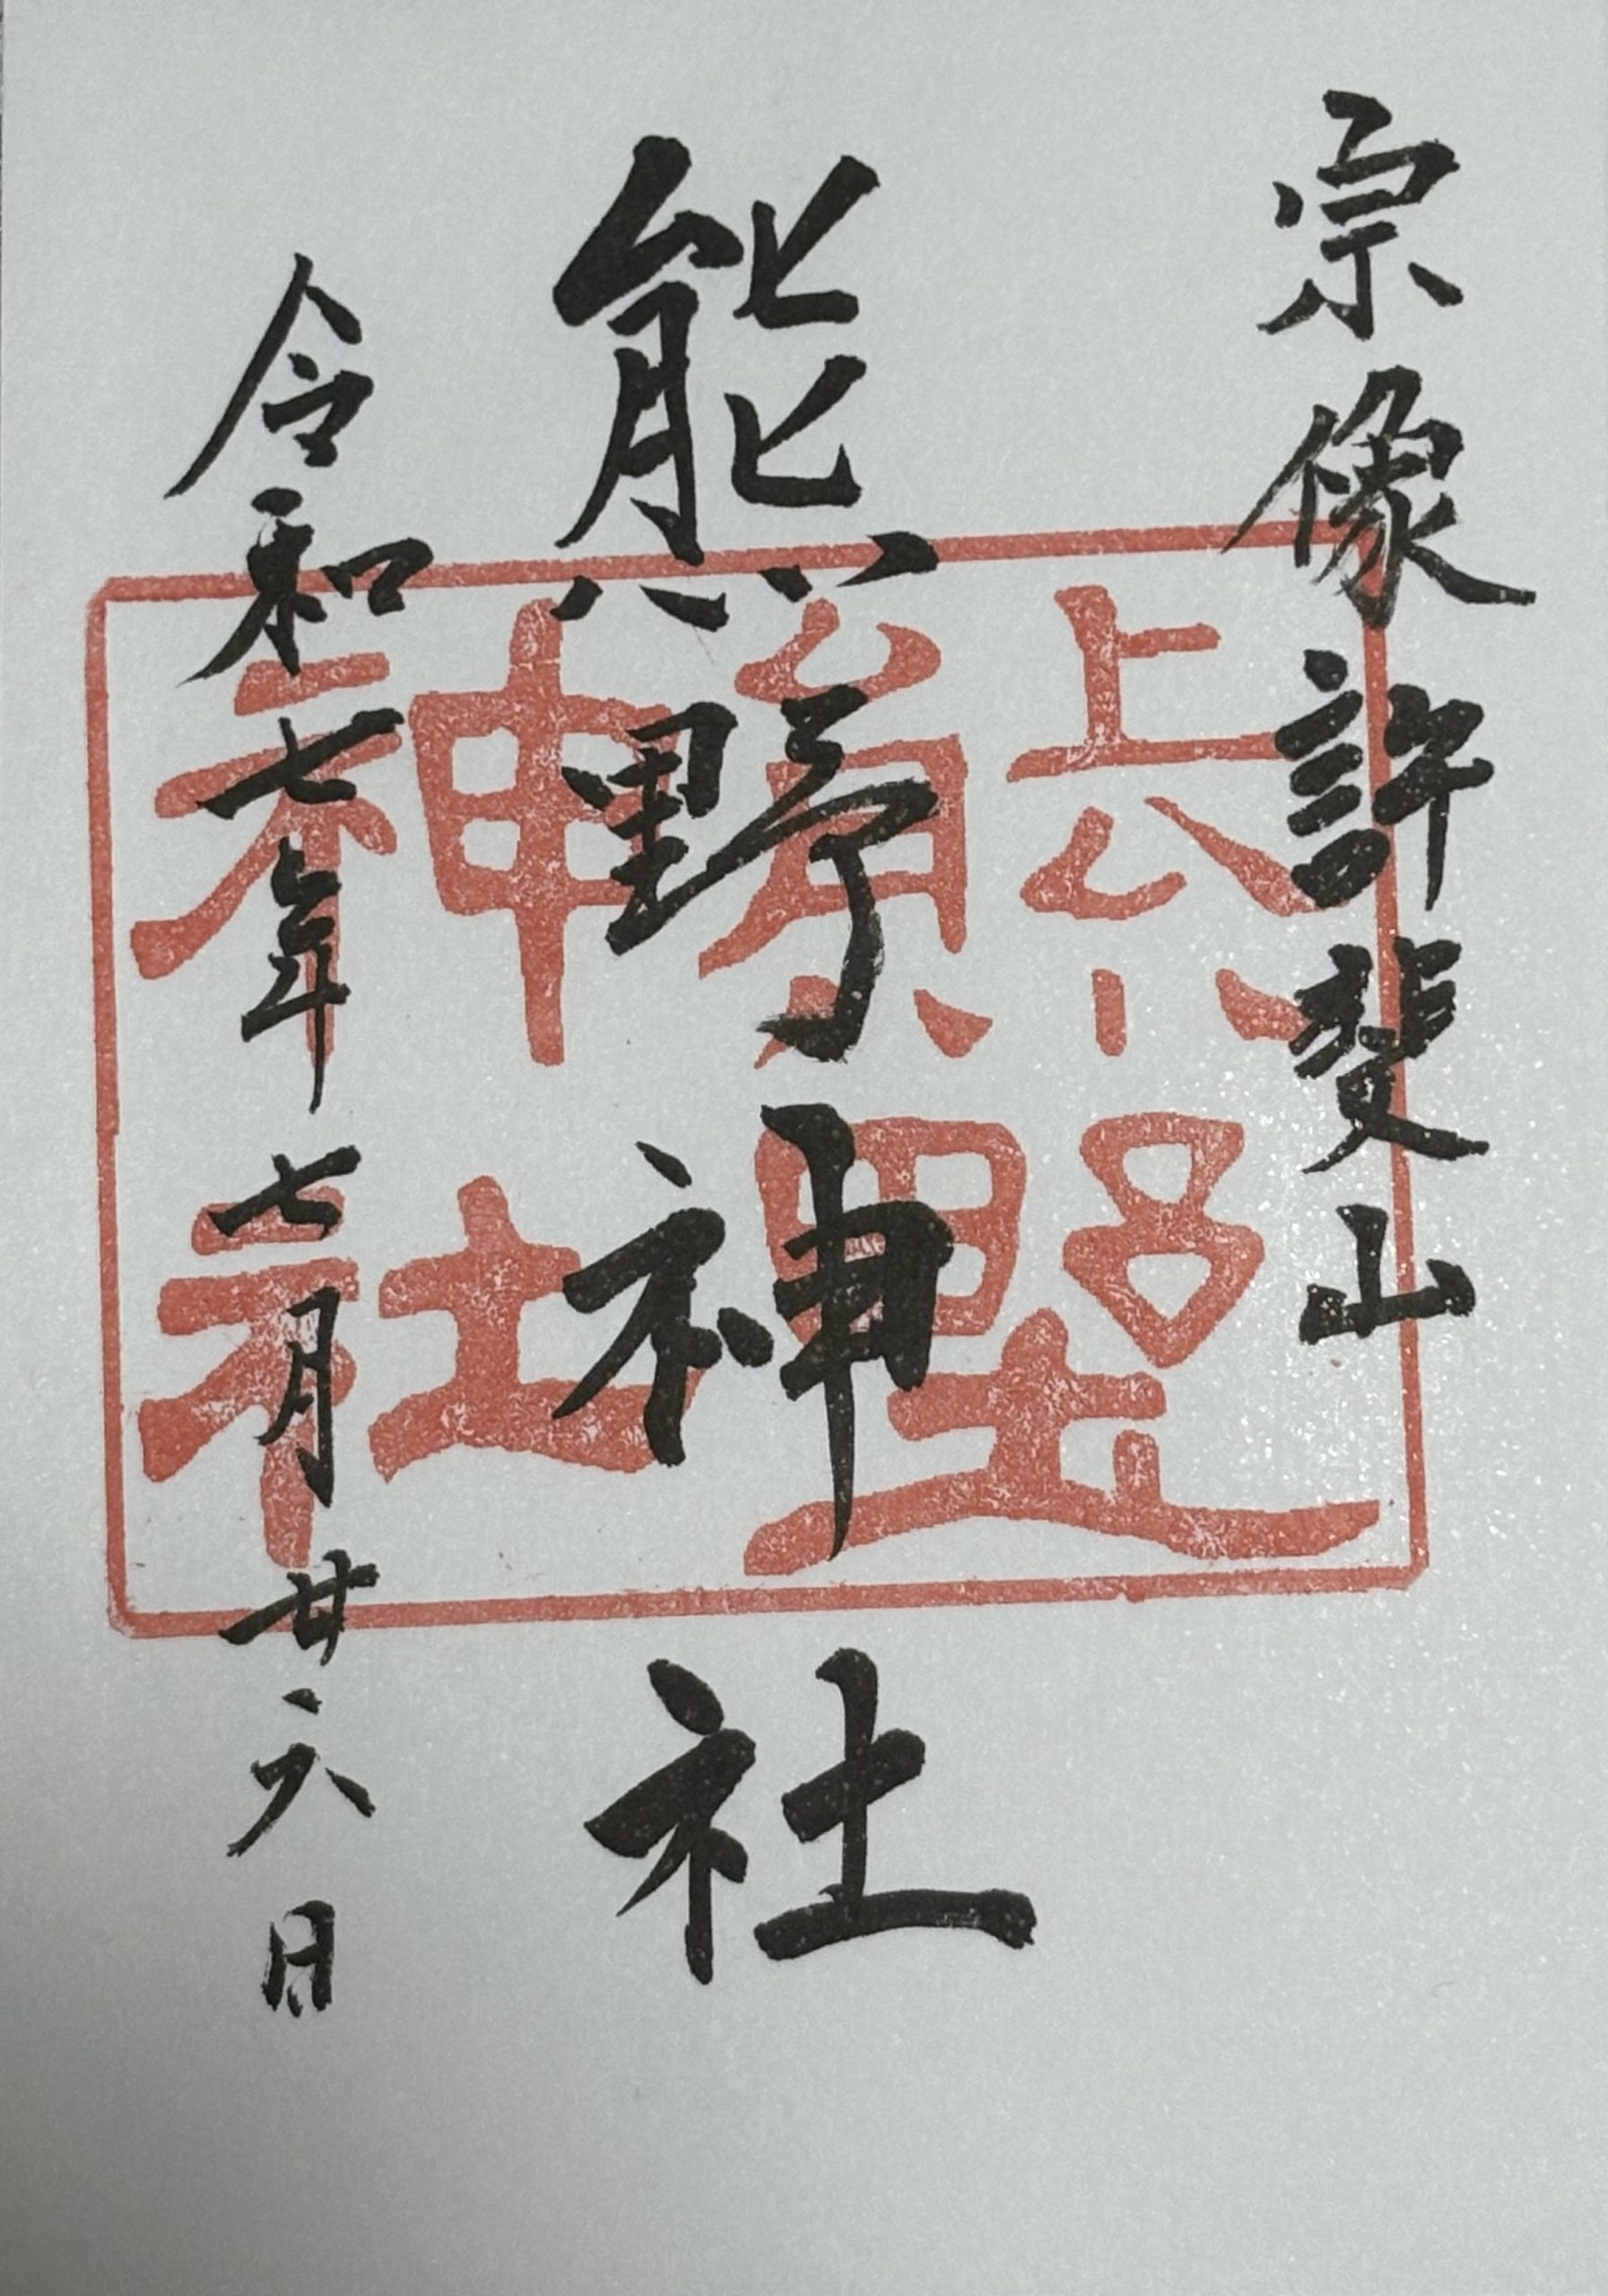 宗像許斐山
熊野神社
令和七年七月廿六日
熊野
神社